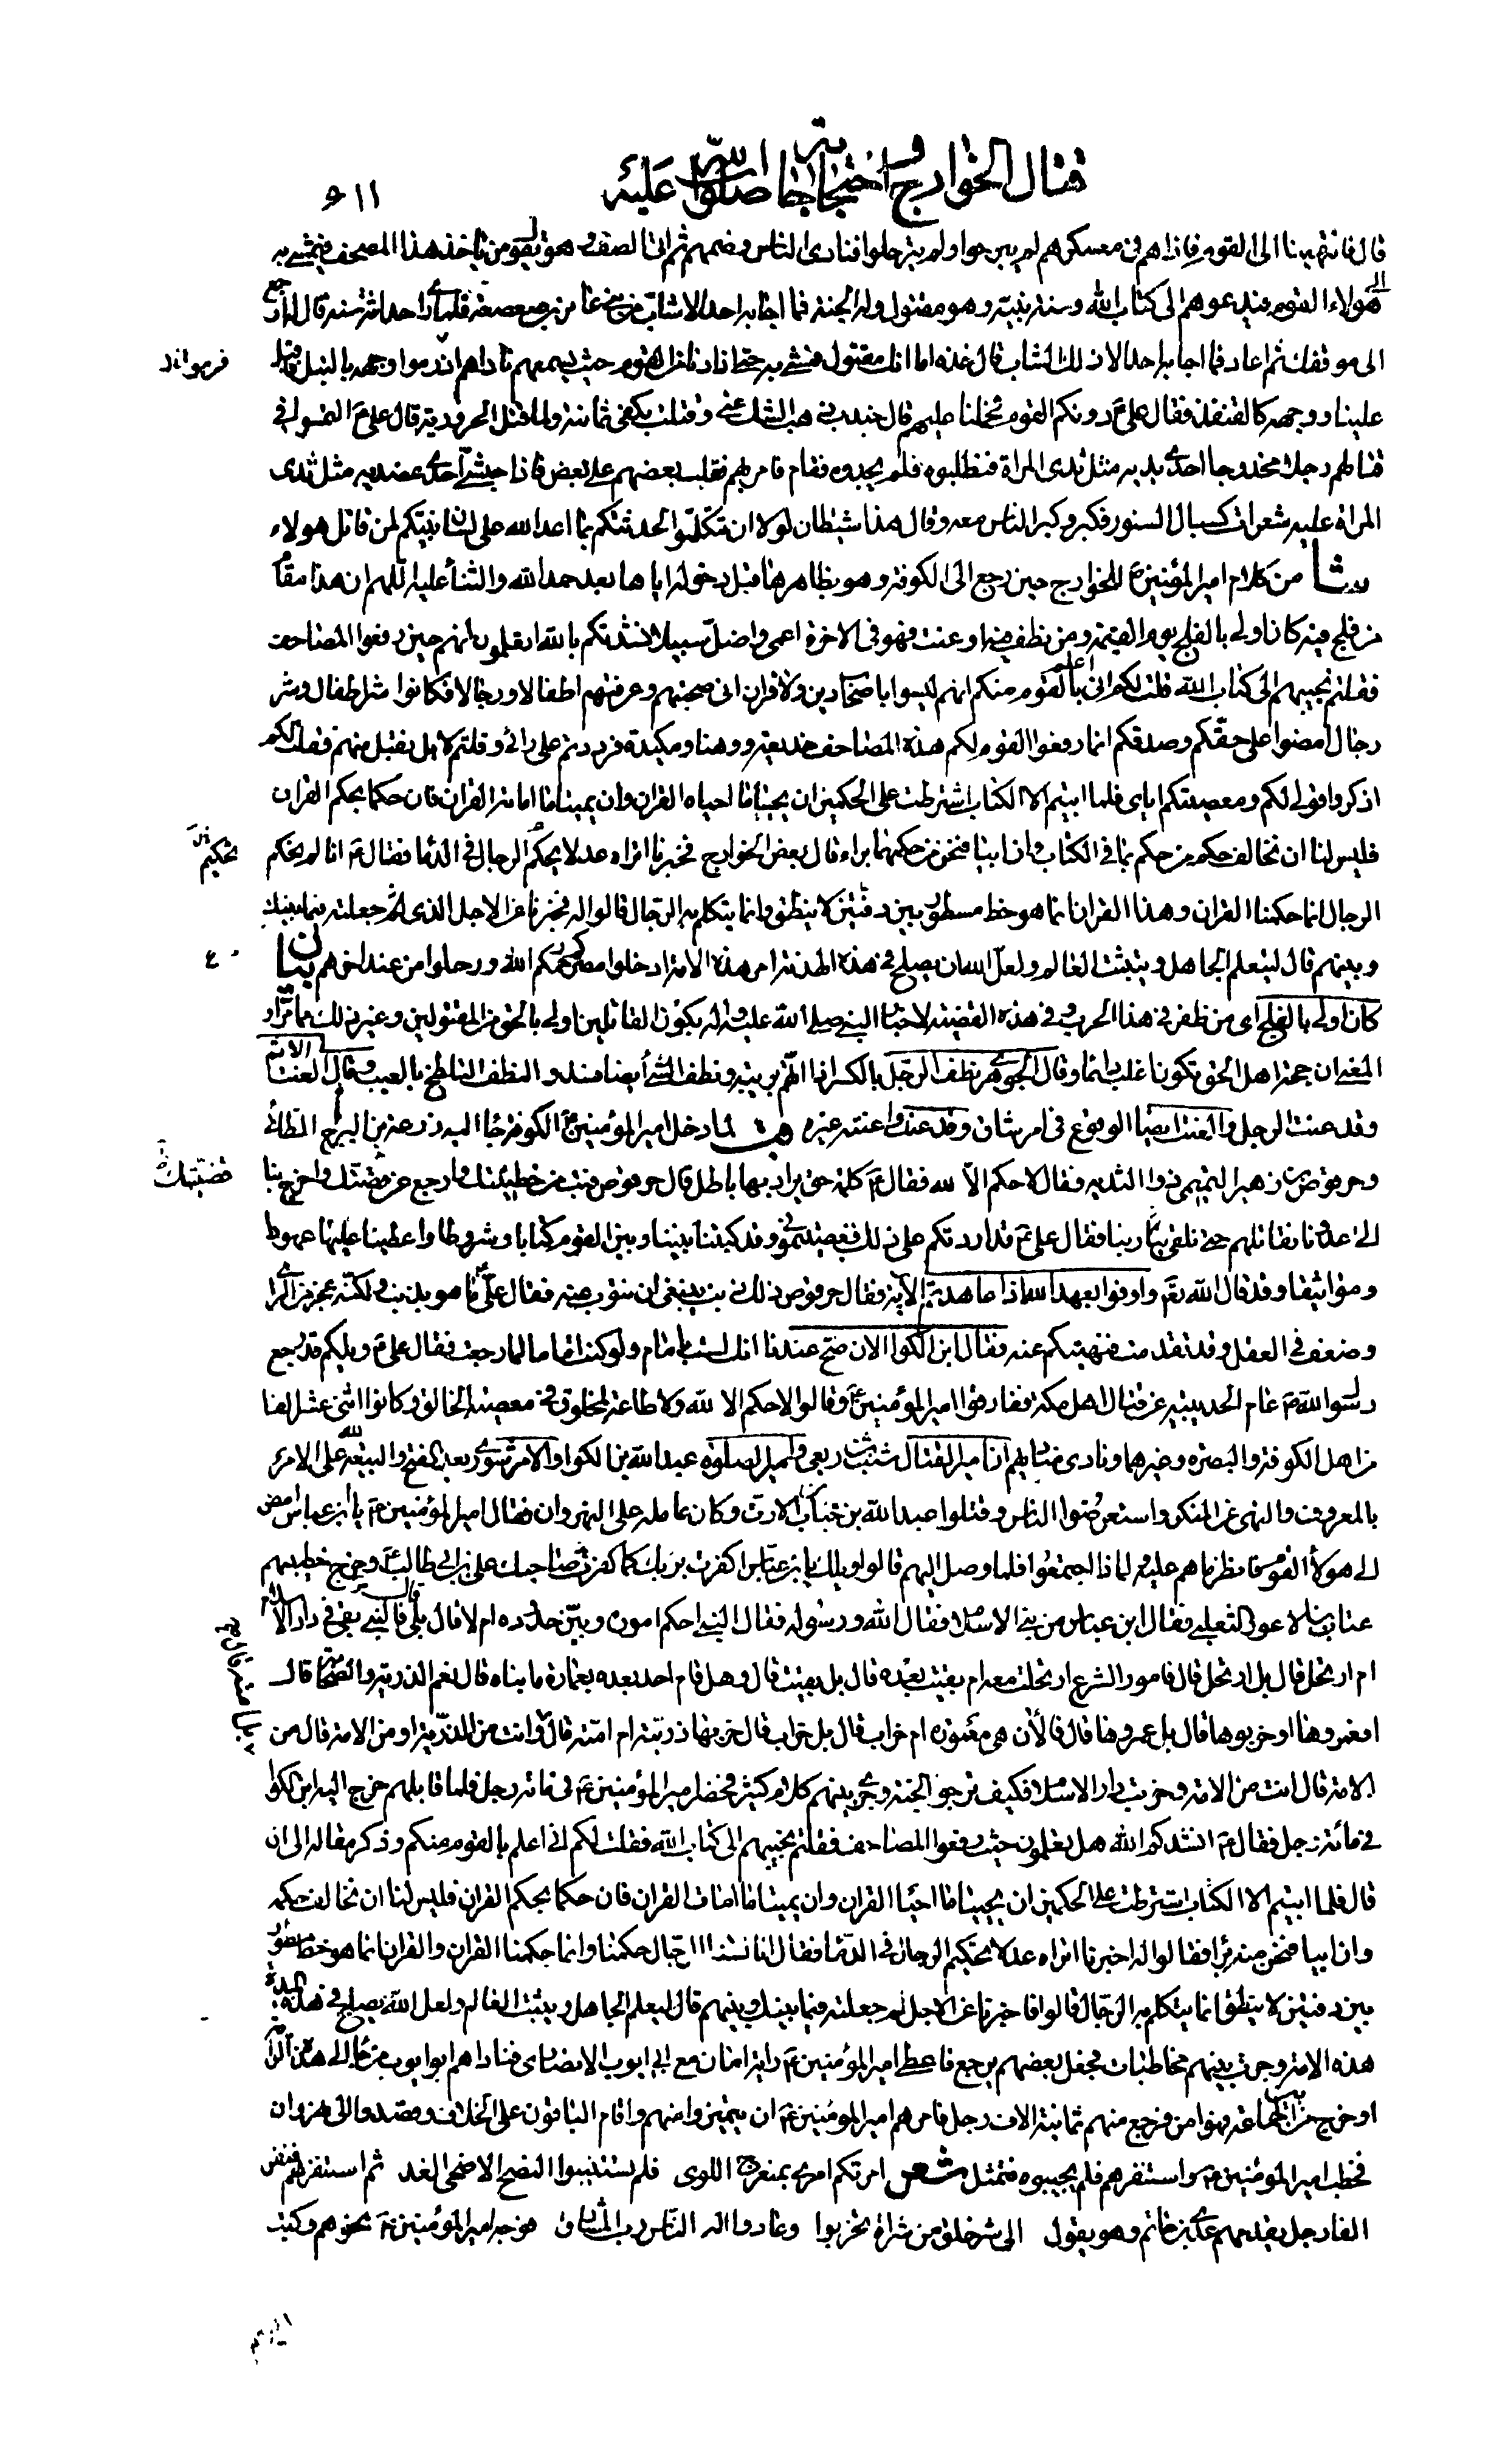 قتال الخوارج واحتجاجاته صلوات الله عليه
٦١١
قال فانتهينا الى القوم فاذا هم في معسكرهم لم يبرحوا ولم يترحلوا فنادى الناس وضمهم ثم اتى الصف وهو يقول من ياخذ هذا المصحف فيمشي به
الى هولاء القوم فيدعوهم الى كتاب الله وسنة نبيه وهو مقتول وله الجنة فما اجابه احد الا شاب من بني عامر بن صعصعة فلما راى حداثة سنه قال له ارجع
الى موقفك ثم اعاد فما اجابه احد الا ذلك الشاب قال خذه اما انك مقتول فمشى به حتى اذا دنا من القوم حيث يسمعهم ناداهم اذ رموا وجهه بالنبل فاقبل
علينا ووجهه كالقنفذ فقال علي ع دونكم القوم فحملنا عليهم قال جندب ذهب الشك عني وقتلت بكفي ثمانية ولما قتل الحرورية قال علي ع التمسوا في
قتلاهم رجلا مخدوجا احدى يديه مثل ثدى المراة فطلبوه فلم يجدوه فقام فامر بهم فقلب بعضهم على بعض فاذا حبشي احدى عضديه مثل ثدى
المراة عليه شعرات كسبال السنور فكبر وكبر الناس معه وقال هذا شيطان لولا ان تتكلوا لحدثتكم بما اعد الله على لسان نبيكم لمن قاتل هولاء
شا من كلام امير المؤمنين ع للخوارج حين رجع الى الكوفة وهو بظاهرها قبل دخوله اياها بعد حمد الله والثناء عليه اللهم ان هذا مقام
من فلج فيه كان اولى بالفلج يوم القيمة ومن نطف فيه او عنت فهو في الاخرة اعمى واضل سبيلا نشدتكم بالله اتعلمون انهم حين رفعوا المصاحف
فقلتم نجيبهم الى كتاب الله قلت لكم اني اعلم بالقوم منكم انهم ليسوا باصحاب دين ولا قران اني صحبتهم وعرفتهم اطفالا ورجالا فكانوا شر اطفال وشر
رجال امضوا على حقكم وصدقكم انما رفعوا القوم لكم هذه المصاحف خديعة ووهنا ومكيدة فرددتم على رائي وقلتم لا بل نقبل منهم فقلت لكم
اذكروا قولي لكم ومعصيتكم اياى فلما ابيتم الا الكتاب اشترطت على الحكمين ان يحييا ما احياه القران وان يميتا ما اماته القران فان حكما بحكم القران
فليس لنا ان نخالف حكم من حكم بما في الكتاب وان ابيا فنحن من حكمهما براء قال بعض الخوارج فخبرنا اتراه عدلا يحكم الرجال في الدماء فقال ع انا لم نحكم
الرجال انما حكمنا القران وهذا القران انما هو خط مسطور بين دفتين لا ينطق وانما يتكلم به الرجال قالوا له فخبرنا عن الاجل الذى لم جعلته فيما بينك
وبينهم قال ليتعلم الجاهل ويتثبت العالم ولعل الله ان يصلح في هذه الهدنة امر هذه الامة ادخلوا مصركم رحمكم الله ورحلوا من عند اخرهم بيان
كان اولى بالفلج اى من ظفر في هذا الحرب وفي هذه القضية لاخبار النبي صلى الله عليه واله يكون القاتلين اولى بالحق من المقتولين وغير ذلك مما مر او
المعنى ان حجة اهل الحق تكون اغلب دائما وقال الجوهري نطف الرجل بالكسر اذا اتهم بريبة ونطف الشئ ايضا فسد والنطف التلطخ بالعيب وقال العنت الاثم
وقد عنت الرجل والعنت ايضا الوقوع في امر شاق وقد عنت واعنته غيره قب لما دخل امير المؤمنين ع الكوفة جاء اليه زرعة بن البرج الطائي
وحرقوص بن زهير التميمي ذو الثدية فقالا لا حكم الا لله فقال ع كلمة حق يراد بها باطل قال حرقوص فتب من خطيئتك وارجع عن قصتك واخرج بنا
الى عدونا نقاتلهم حتى نلقى ربنا فقال علي ع قد اردتكم على ذلك فعصيتموني وقد كتبنا بيننا وبين القوم كتابا وشروطا واعطينا عليها عهودا
ومواثيقا وقد قال الله تع واوفوا بعهد الله اذا عاهدتم الاية فقال حرقوص ذلك ذنب ينبغي ان نتوب عنه فقال علي ع ما هو بذنب ولكنه عجز من الراى
وضعف في العقل وقد تقدمت فنهيتكم عنه فقال ابن الكوا الان صح عندنا انك لست بامام ولو كنت اماما لما رجعت فقال علي ع ويلكم قد رجع
رسول الله ص عام الحديبية عن قتال اهل مكة ففارقوا امير المؤمنين ع وقالوا لا حكم الا لله ولا طاعة لمخلوق في معصية الخالق وكانوا اثنى عشر الفا
من اهل الكوفة والبصرة وغيرهما ونادى مناديهم ان امير القتال شبث بن ربعي وامير الصلوة عبد الله بن الكوا والامر شورى بعد الفتح والبيعة لله على الامر
بالمعروف والنهي عن المنكر واستعرضوا الناس وقتلوا عبد الله بن خباب بن الارت وكان عامله على النهروان فقال امير المؤمنين ع يا ابن عباس امض
الى هولاء القوم فانظر ما هم عليه ولماذا اجتمعوا فلما وصل اليهم قالوا ويلك يا ابن عباس اكفرت بربك كما كفر صاحبك علي بن ابي طالب ع وخرج خطيبهم
عتاب بن الاعور الثعلبي فقال ابن عباس من بنى الاسلام فقال الله ورسوله فقال النبي احكم اموره وبين حدوده ام لا قال بلى قال فالنبي بقي في دار الاسلام
ام ارتحل قال بل ارتحل قال فامور الشرع ارتحلت معه ام بقيت بعده قال بل بقيت قال وهل قام احد بعده بعمارة ما بناه قال نعم الذرية والصحابة قال
افعمروها او خربوها قال بل عمروها قال فالان هي معمورة ام خراب قال بل خراب قال خربها ذريته ام امته قال بل امته قال وانت من الذرية او من الامة قال من
الامة قال انت من الامة وخربت دار الاسلام فكيف ترجو الجنة وجرى بينهم كلام كثير فحضر امير المؤمنين ع في مائة رجل فلما قابلهم خرج اليه ابن الكوا
في مائة رجل فقال ع انشدكم الله هل تعلمون حيث رفعوا المصاحف فقلتم نجيبهم الى كتاب الله فقلت لكم اني اعلم بالقوم منكم وذكر مقاله الى ان
قال فلما ابيتم الا الكتاب اشترطت على الحكمين ان يحييا ما احيا القران وان يميتا ما امات القران فان حكما بحكم القران فليس لنا ان نخالف حكمه
وان ابيا فنحن منه براء فقالوا له اخبرنا اتراه عدلا تحكيم الرجال في الدماء فقال انا لسنا الرجال حكمنا وانما حكمنا القران والقران انما هو خط مسطور
بين دفتين لا ينطق انما يتكلم به الرجال قالوا فاخبرنا عن الاجل لم جعلته فيما بينك وبينهم قال ليعلم الجاهل ويتثبت العالم ولعل الله يصلح في هذه المدة
هذه الامة وجرت بينهم مخاطبات فجعل بعضهم يرجع فاعطى امير المؤمنين ع راية امان مع ابي ايوب الانصارى فناداهم ابو ايوب من جاء الى هذه الراية
او خرج من الجماعة فهو امن فرجع منهم ثمانية الاف رجل فامرهم امير المؤمنين ع ان يتميزوا منهم واقام الباقون على الخلاف وقصدوا الى نهروان
فخطب امير المؤمنين ع واستنفرهم فلم يجيبوه فتمثل شعر امرتكم امرى بمنعرج اللوى فلم تستبينوا النصح الا ضحى الغد ثم استنفرهم فنفر
الفا رجل يقدمهم عدي بن حاتم وهو يقول الى شر خلق من شراة تحزبوا وعادوا اله الناس رب المشارق فوجه امير المؤمنين ع نحوهم وكتب
تحكيم
قضيتك